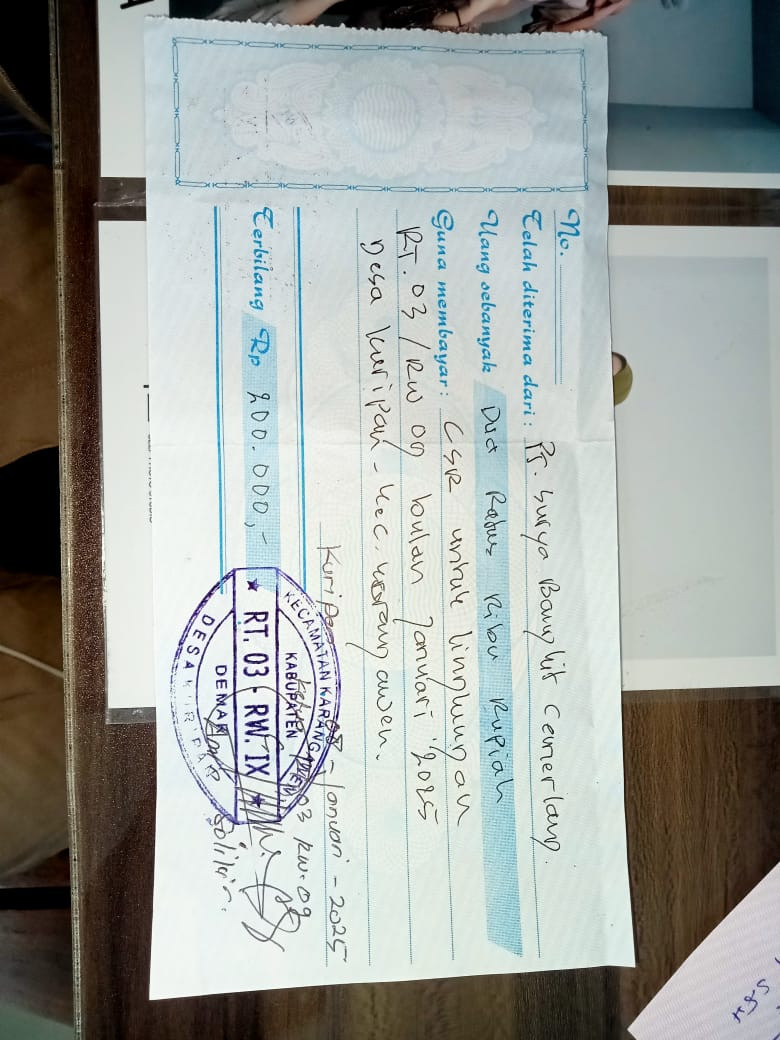 No.
Telah diterima dari : PT. Surya Bangkit Cemerlang.
Uang sebanyak Dua Ratus Ribu Rupiah
Guna membayar : CSR untuk lingkungan
RT. 03 / RW 09 bulan Januari '2025
Desa Kuripan - Kec. Karangawen.
Kuripan 08 - Januari - 2025
Ketua RT 03 RW. 09
Terbilang Rp 200.000,-
KECAMATAN KARANGAWEN
KABUPATEN
★ RT. 03 - RW. IX ★
DEMAK
DESA KURIPAN
Solikin.